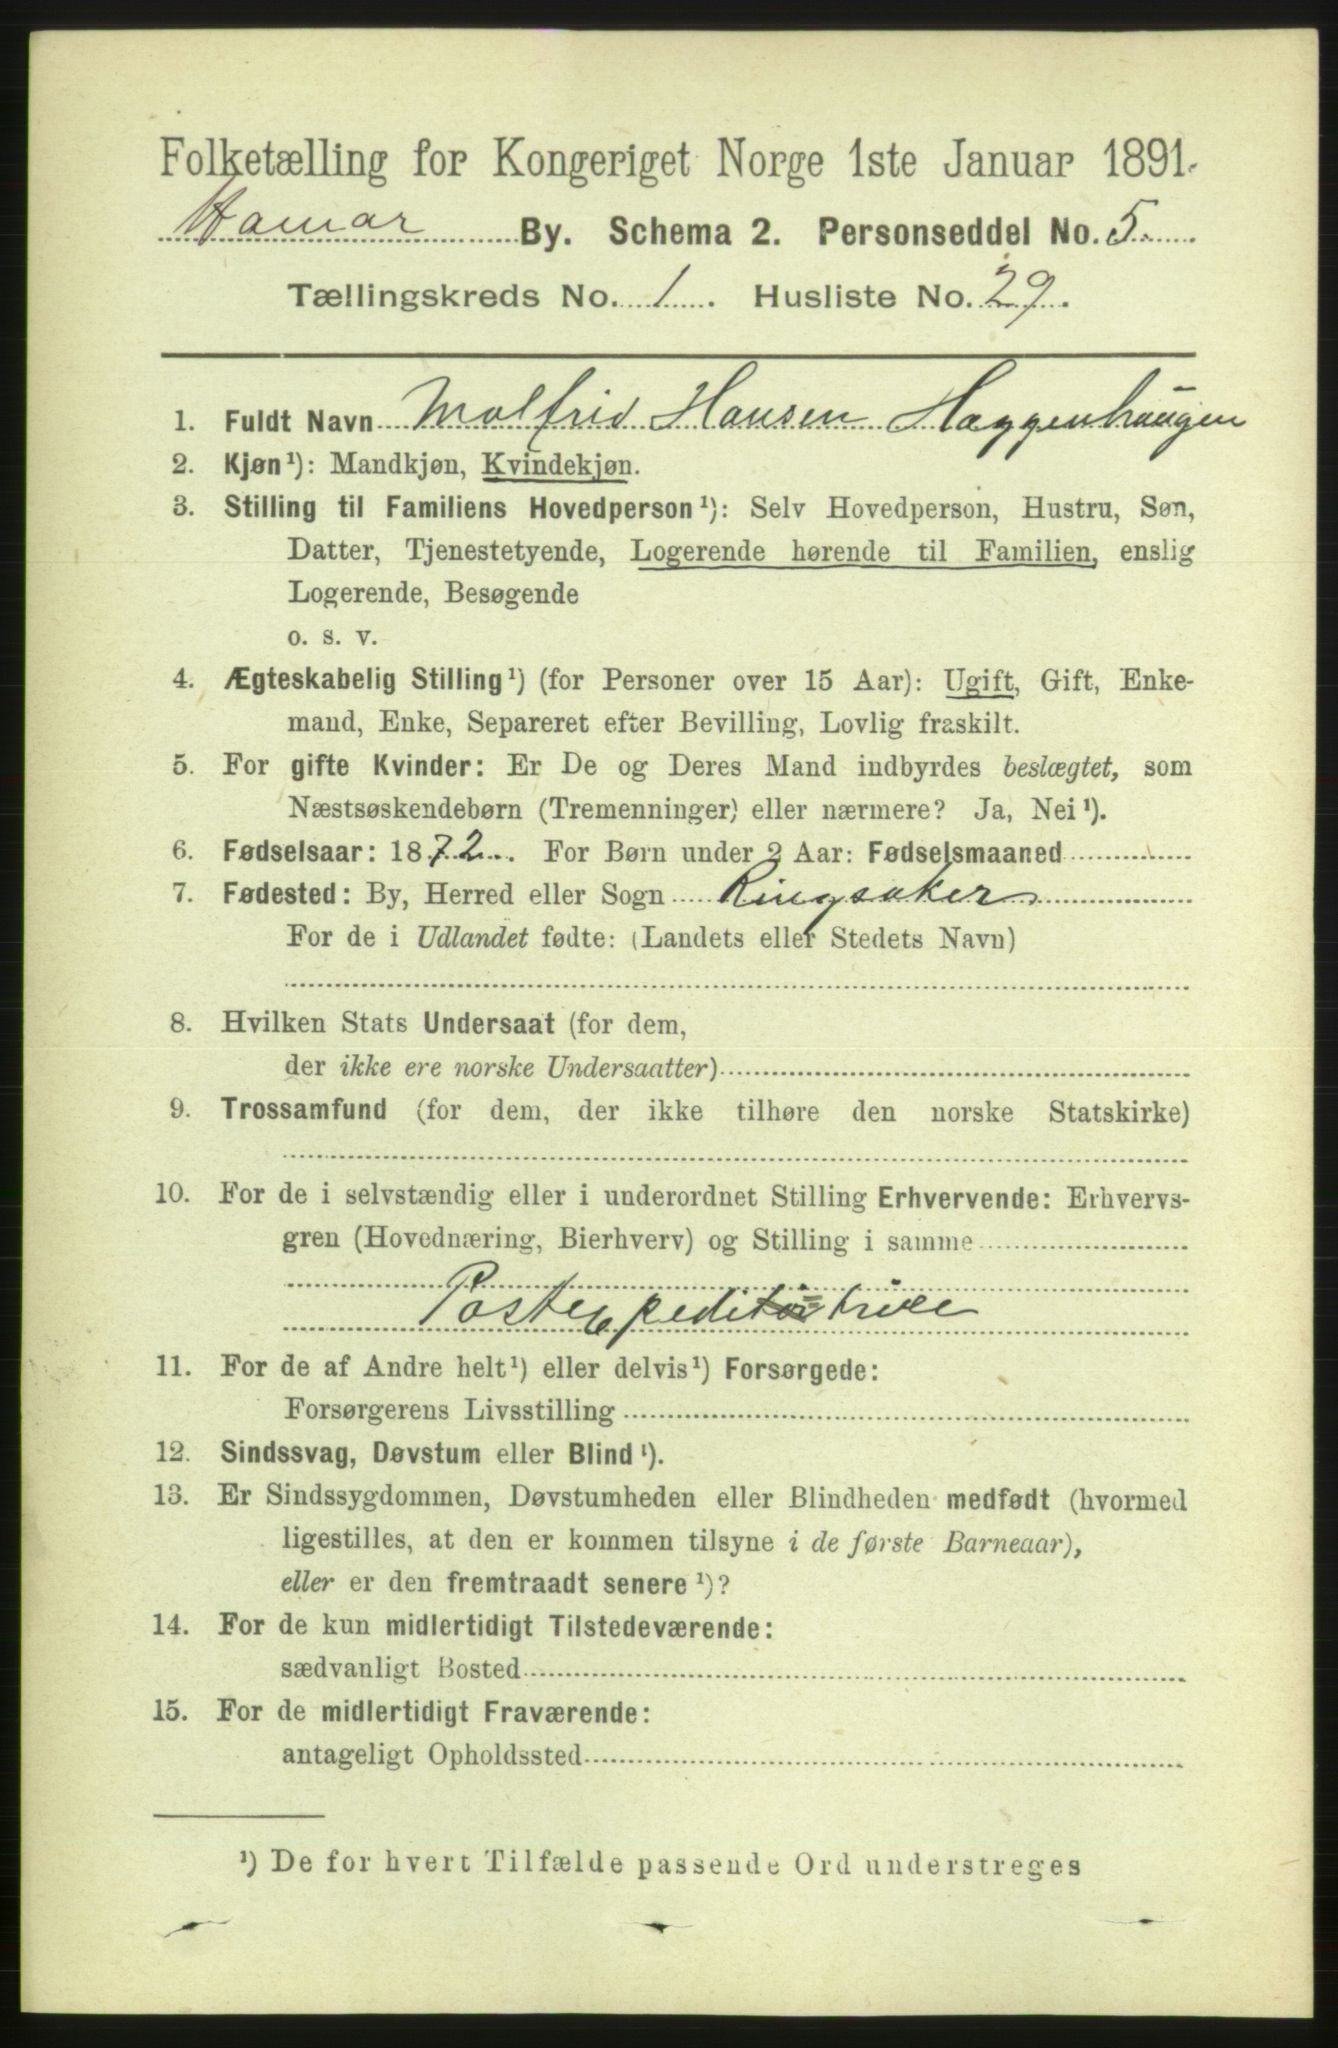 Folketælling for Kongeriget Norge 1ste Januar 1891.
Hamar By. Schema 2. Personseddel No. 5.
Tællingskreds No. 1. Husliste No. 29.
1. Fuldt Navn Molfrid Hansen Haggenhaugen
2. Kjøn¹): Mandkjøn, Kvindekjøn.
3. Stilling til Familiens Hovedperson¹): Selv Hovedperson, Hustru, Søn,
Datter, Tjenestetyende, Logerende hørende til Familien, enslig
Logerende, Besøgende
o. s. v.
4. Ægteskabelig Stilling¹) (for Personer over 15 Aar): Ugift, Gift, Enke-
mand, Enke, Separeret efter Bevilling, Lovlig fraskilt.
5. For gifte Kvinder: Er De og Deres Mand indbyrdes beslægtet, som
Næstsøskendebørn (Tremenninger) eller nærmere? Ja, Nei¹).
6. Fødselsaar: 1872. For Børn under 2 Aar: Fødselsmaaned
7. Fødested: By, Herred eller Sogn Ringsaker
For de i Udlandet fødte: (Landets eller Stedets Navn)
8. Hvilken Stats Undersaat (for dem,
der ikke ere norske Undersaatter)
9. Trossamfund (for dem, der ikke tilhøre den norske Statskirke)
10. For de i selvstændig eller i underordnet Stilling Erhvervende: Erhvervs-
gren (Hovednæring, Bierhverv) og Stilling i samme
Postexpeditrice
11. For de af Andre helt¹) eller delvis¹) Forsørgede:
Forsørgerens Livsstilling
12. Sindssvag, Døvstum eller Blind¹).
13. Er Sindssygdommen, Døvstumheden eller Blindheden medfødt (hvormed
ligestilles, at den er kommen tilsyne i de første Barneaar),
eller er den fremtraadt senere¹)?
14. For de kun midlertidigt Tilstedeværende:
sædvanligt Bosted
15. For de midlertidigt Fraværende:
antageligt Opholdssted
¹) De for hvert Tilfælde passende Ord understreges